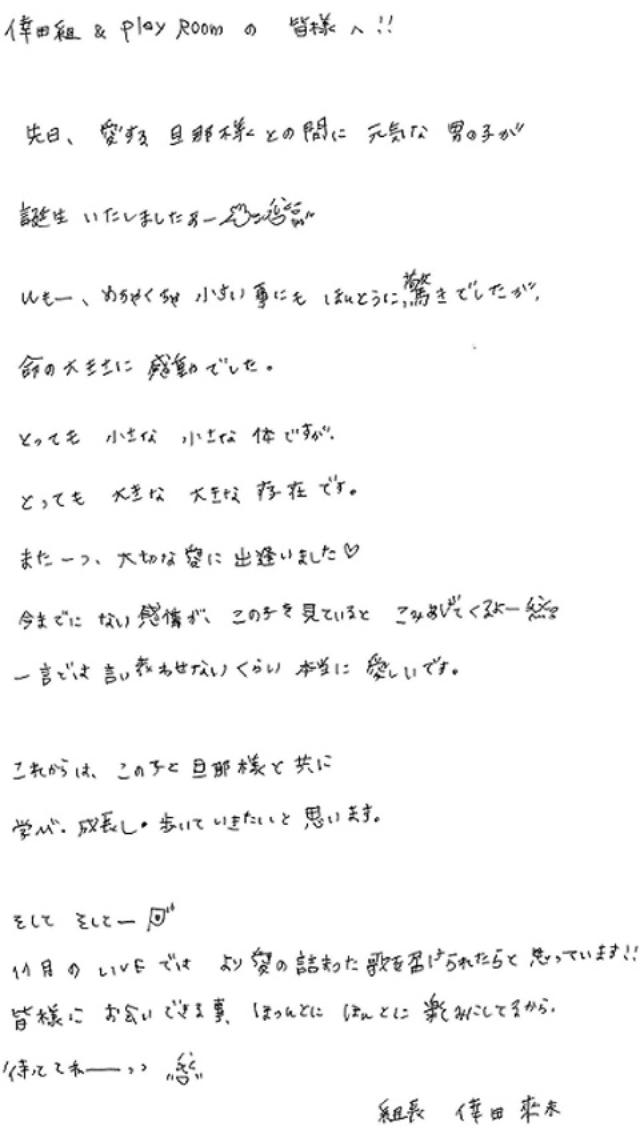 倖田組 & Play Room の 皆様へ!!
先日、愛する 旦那様との間に 元気な 男の子が
誕生 いたしましたぁー
いもー、めちゃくちゃ 小さい事にも ほんとうに、驚きでしたが、
命の大きさに 感動でした。
とっても 小さな 小さな 体ですが、
とっても 大きな 大きな 存在です。
また一つ、大切な愛に 出逢いました♡
今までに ない感情が、この子を見ていると こみあげてくるよー
一言では 言い表わせないくらい 本当に 愛しいです。
これからは、この子と 旦那様と 共に
学び・成長し・歩いて いきたいと 思います。
そして そしてー
11月の LIVE では より 愛の詰まった 歌を届けられたらと 思っています!!
皆様に お会いできる事、ほっんとに ほんとに 楽しみにしてるから、
待っててねーーっっ
組長 倖田 來未